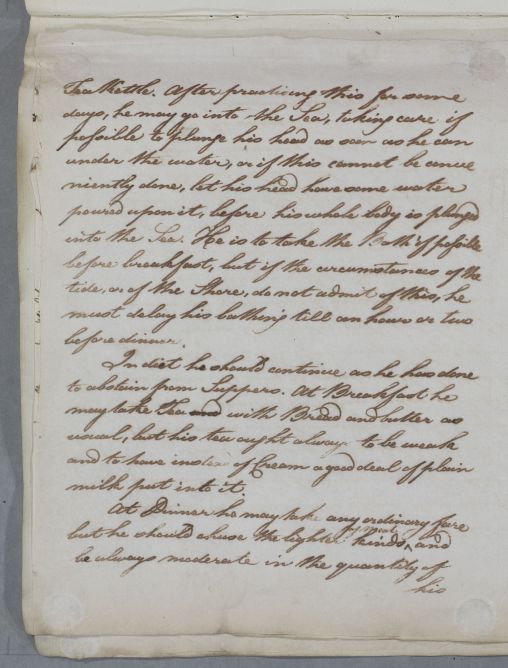 Tea Kettle. After practicing this for some
days, he may go into the Sea, taking care if
possible to plunge his head as soon as he can
under the water, or if this cannot be conve
niently done, let his head have some water
poured upon it, before his whole body is plunged
into the Sea. He is to take the Bath if possible
before breakfast, but if the circumstances of the
tide, or of the Shore, do not admit of this, he
must delay his bathing till an hour or two
before dinner.
In diet he should continue as he has done
to abstain from Suppers. At Breakfast he
may take Tea and with Bread and butter as
usual, but his tea ought always to be weak
and to have instead of Cream a good deal of plain
milk put into it
At Dinner he may take any ordinary fare
but he should chuse the lighter kinds of meat, and
be always moderate in the quantity of
his